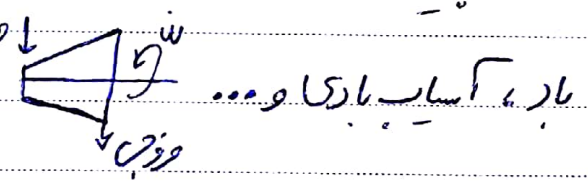 ẇ
باد، آسیاب بادی و ...
خروجی